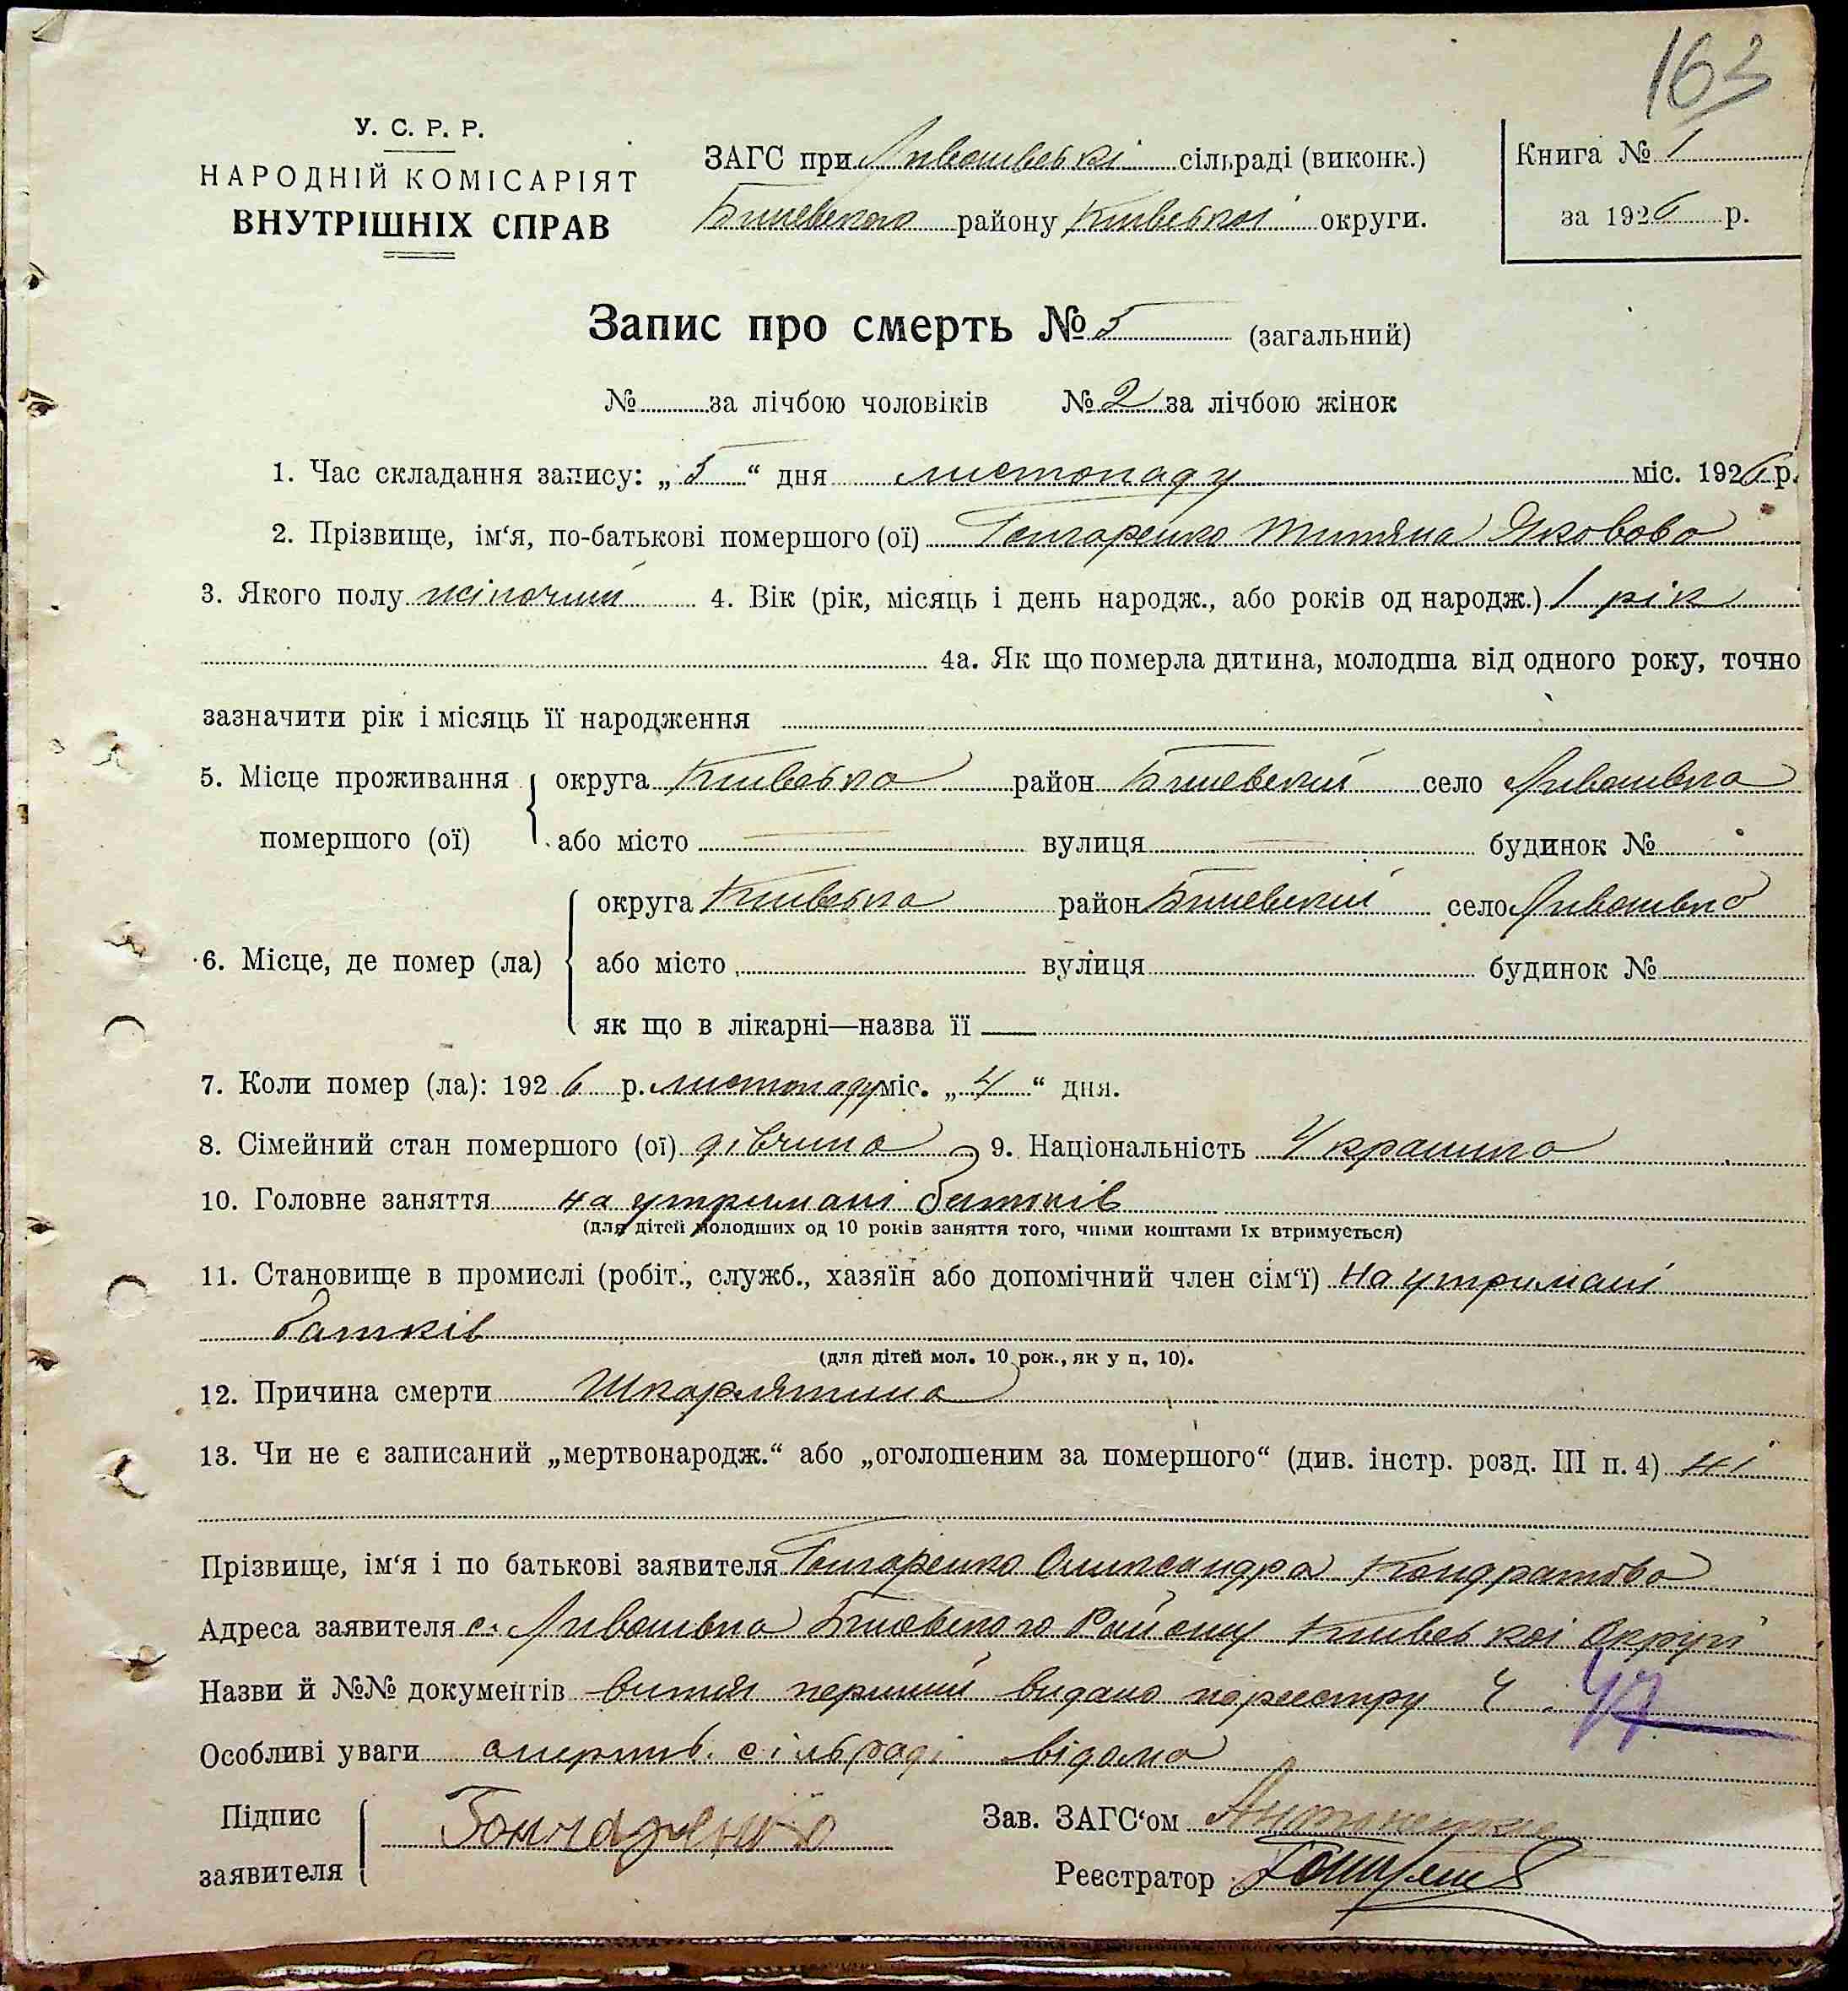 163
У. С. Р. Р.
НАРОДНІЙ КОМІСАРІЯТ
ВНУТРІШНІХ СПРАВ
ЗАГС при сільраді (виконк.)
Бишевського району Київської округи.
Книга № 1
за 1926 р.
Запис про смерть № 5 (загальний)
№ за лічбою чоловіків № 2 за лічбою жінок
1. Час складання запису: „5“ дня листопаду міс. 1926 р.
2. Прізвище, ім‘я, по-батькові помершого (ої) Гончаренко Титяна Яковова
3. Якого полу жіночий 4. Вік (рік, місяць і день народж., або років од народж.) 1 рік
4а. Як що померла дитина, молодша від одного року, точно
зазначити рік і місяць її народження
5. Місце проживання помершого (ої)
округа Київська район Бишевський село Ливошвка
або місто — вулиця — будинок №
6. Місце, де помер (ла)
округа Київська район Бишевський село Ливошвка
або місто вулиця будинок №
як що в лікарні—назва її —
7. Коли помер (ла): 1926 р. листопаду міс. „4“ дня.
8. Сімейний стан помершого (ої) дівчина 9. Національність Украинка
10. Головне заняття на утримані батьків
(для дітей молодших од 10 років заняття того, чиїми коштами їх втримується)
11. Становище в промислі (робіт., служб., хазяїн або допомічний член сім‘ї) на утримані
батьків
(для дітей мол. 10 рок., як у п. 10).
12. Причина смерти Шкарлятина
13. Чи не є записаний „мертвонародж.“ або „оголошеним за помершого“ (див. інстр. розд. III п. 4) ні
Прізвище, ім‘я і по батькові заявителя Гончаренко Олександра Кондратова
Адреса заявителя с. Ливошвка Бишевського Району Київської Округи
Назви й №№ документів витяг перший видано по реєстру Ч. 47
Особливі уваги смерть сільраді відома
Підпис заявителя Гончаренко
Зав. ЗАГС‘ом
Реєстратор